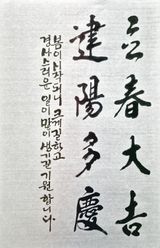 立春大吉
建陽多慶
봄이 시작되니 크게 길하고
경사스러운 일이 많이 생기길 기원합니다